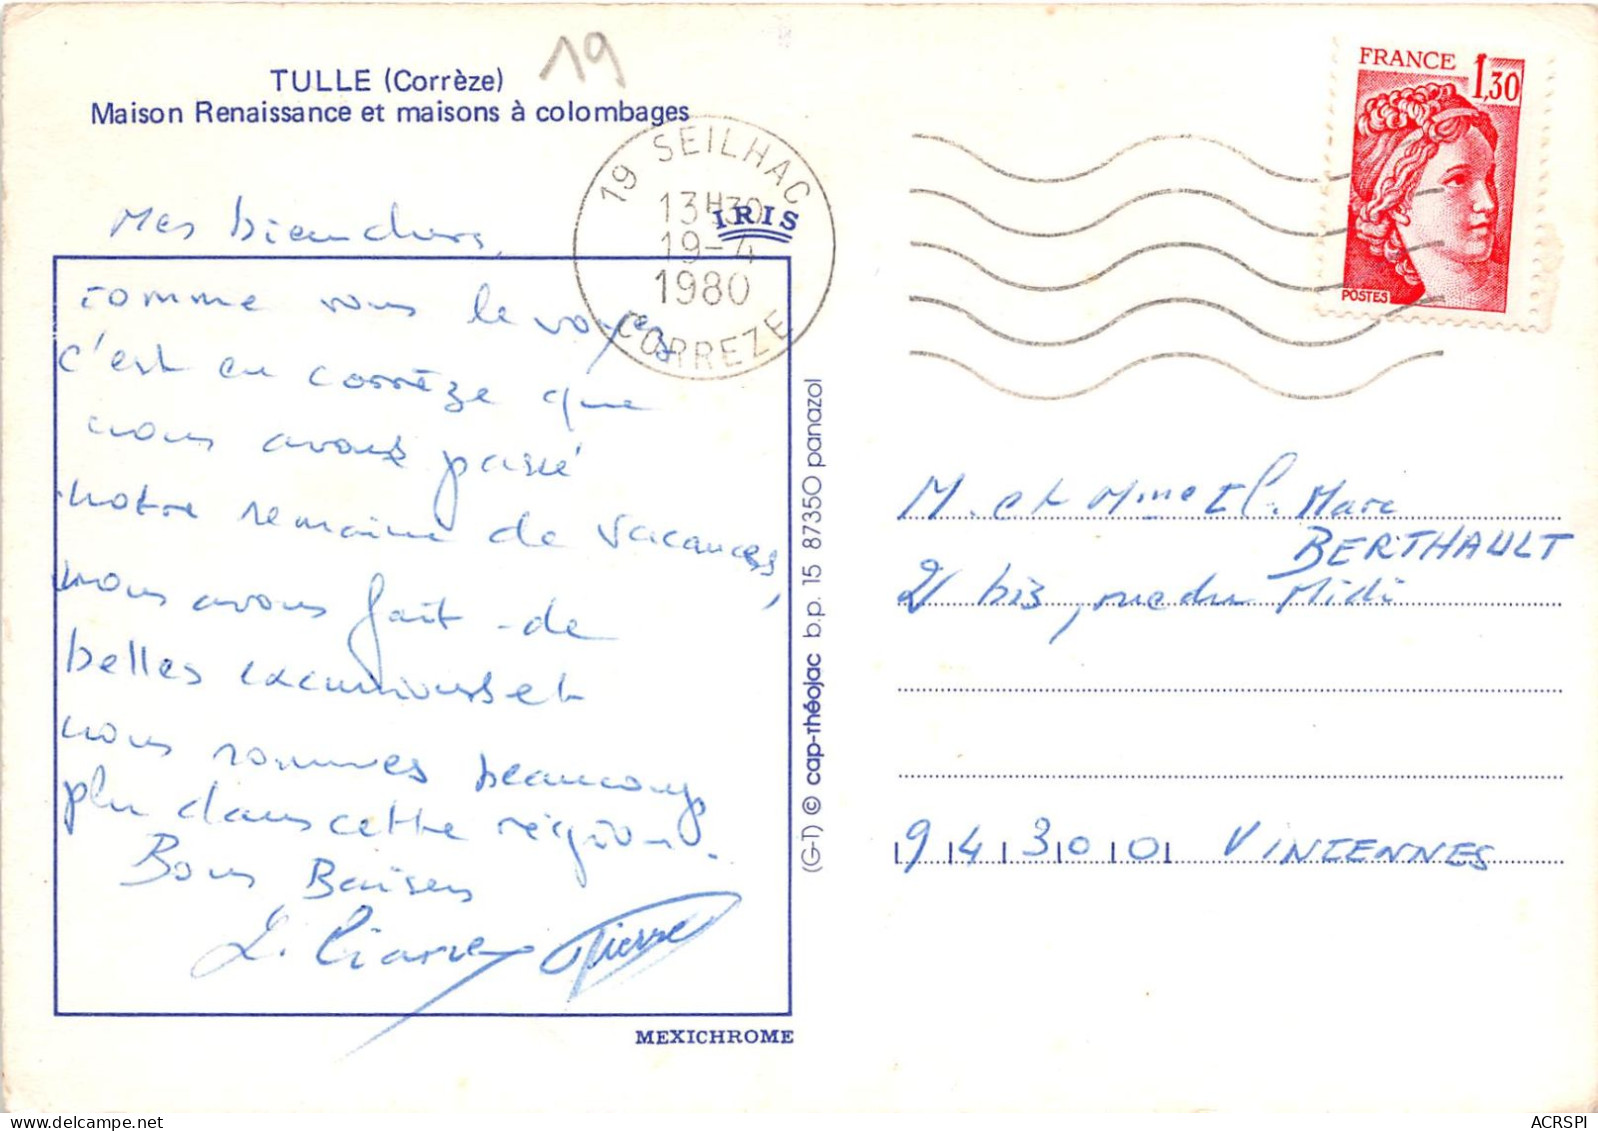 TULLE (Corrèze)
Maison Renaissance et maisons à colombages
19
19 SEILHAC
13H30
19-4
1980
CORREZE
IRIS
FRANCE 1,30
POSTES
Mes bien chers,
comme vous le voyez
c'est en Corrèze que
nous avons passé
notre semaine de vacances,
nous avons fait de
belles excursions et
nous sommes beaucoup
plu dans cette région.
Bons Baisers
Pierre
(G-T) © cap-théojac b.p. 15 87350 panazol
MEXICHROME
M. et Mme Cl. Marc
BERTHAULT
2 bis, rue du Midi
94300 VINCENNES
ACRSPI